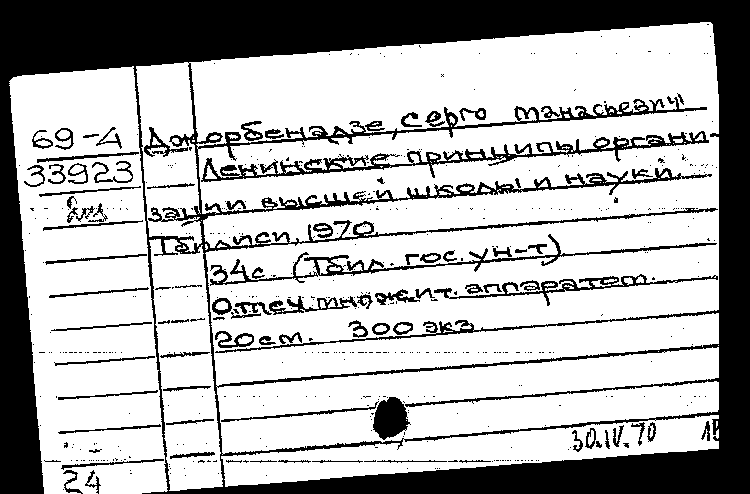 69-4 Джорбенадзе, Серго Манасьевич
33923 Ленинские принципы органи-
2ия зации высшей школы и науки.
Тбилиси, 1970
34с. (Тбил. гос. ун-т)
Отпеч. множит. аппаратом.
20см. 300 экз.
30.IV.70
24